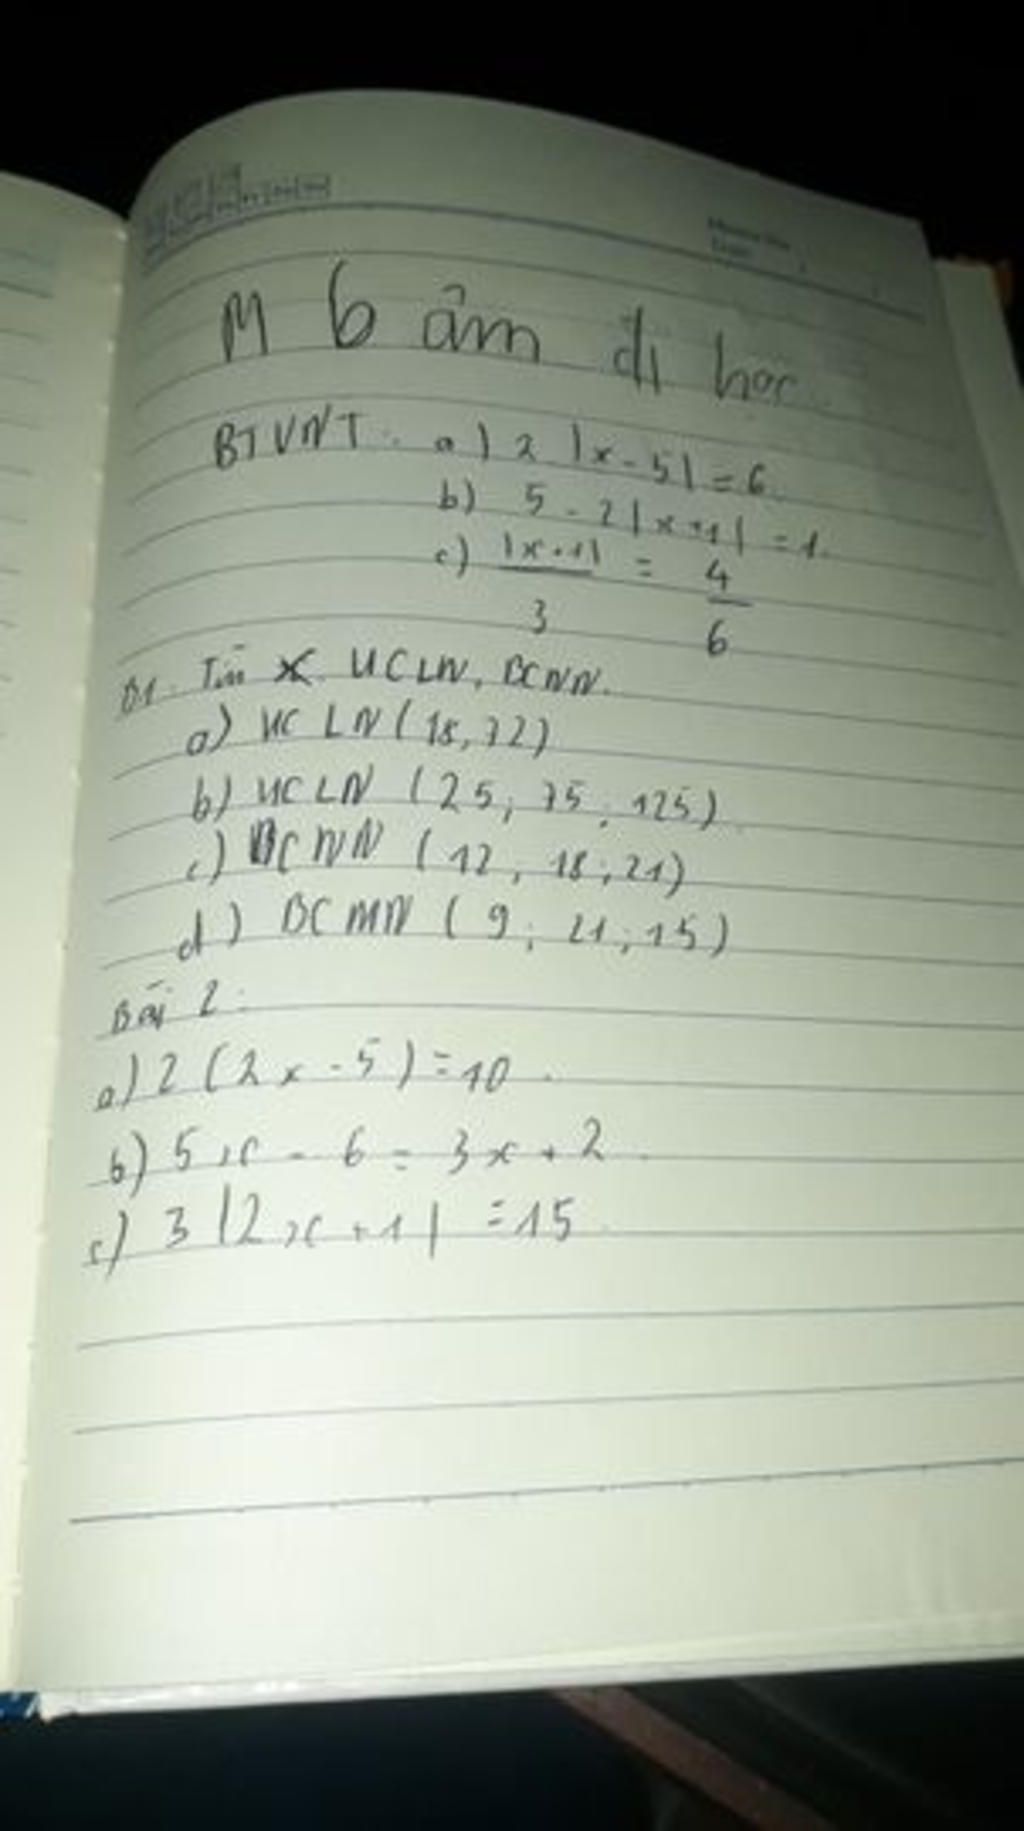 M 6 âm đi học
BTVNT. a) 2 |x - 5| = 6.
b) 5 - 2|x + 1| = 1.
c) |x + 1| / 3 = 4 / 6
B1. Tìm x. UCLN, BCNN.
a) UCLN (18, 72)
b) UCLN (25; 75; 125)
c) BCNN (12, 18; 21)
d) BCNN (9; 21; 15)
Bài 2:
a) 2 (2x - 5) = 10.
b) 5x - 6 = 3x + 2.
c) 3 |2x + 1| = 15.